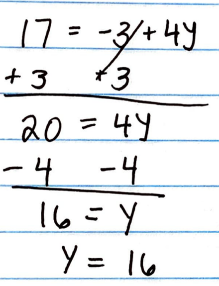 17 = -3 + 4y
+3 +3
20 = 4y
-4 -4
16 = y
y = 16